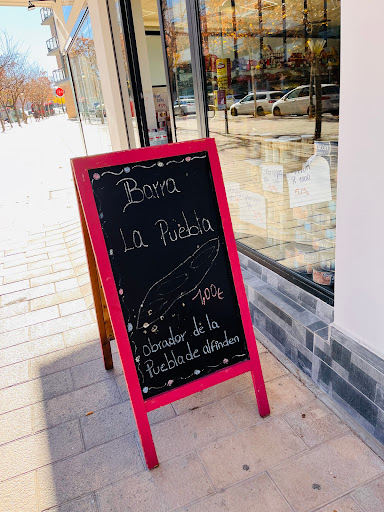 Barra
La Puèbla
1,00€
obrador dè la
Puebla de alfinden